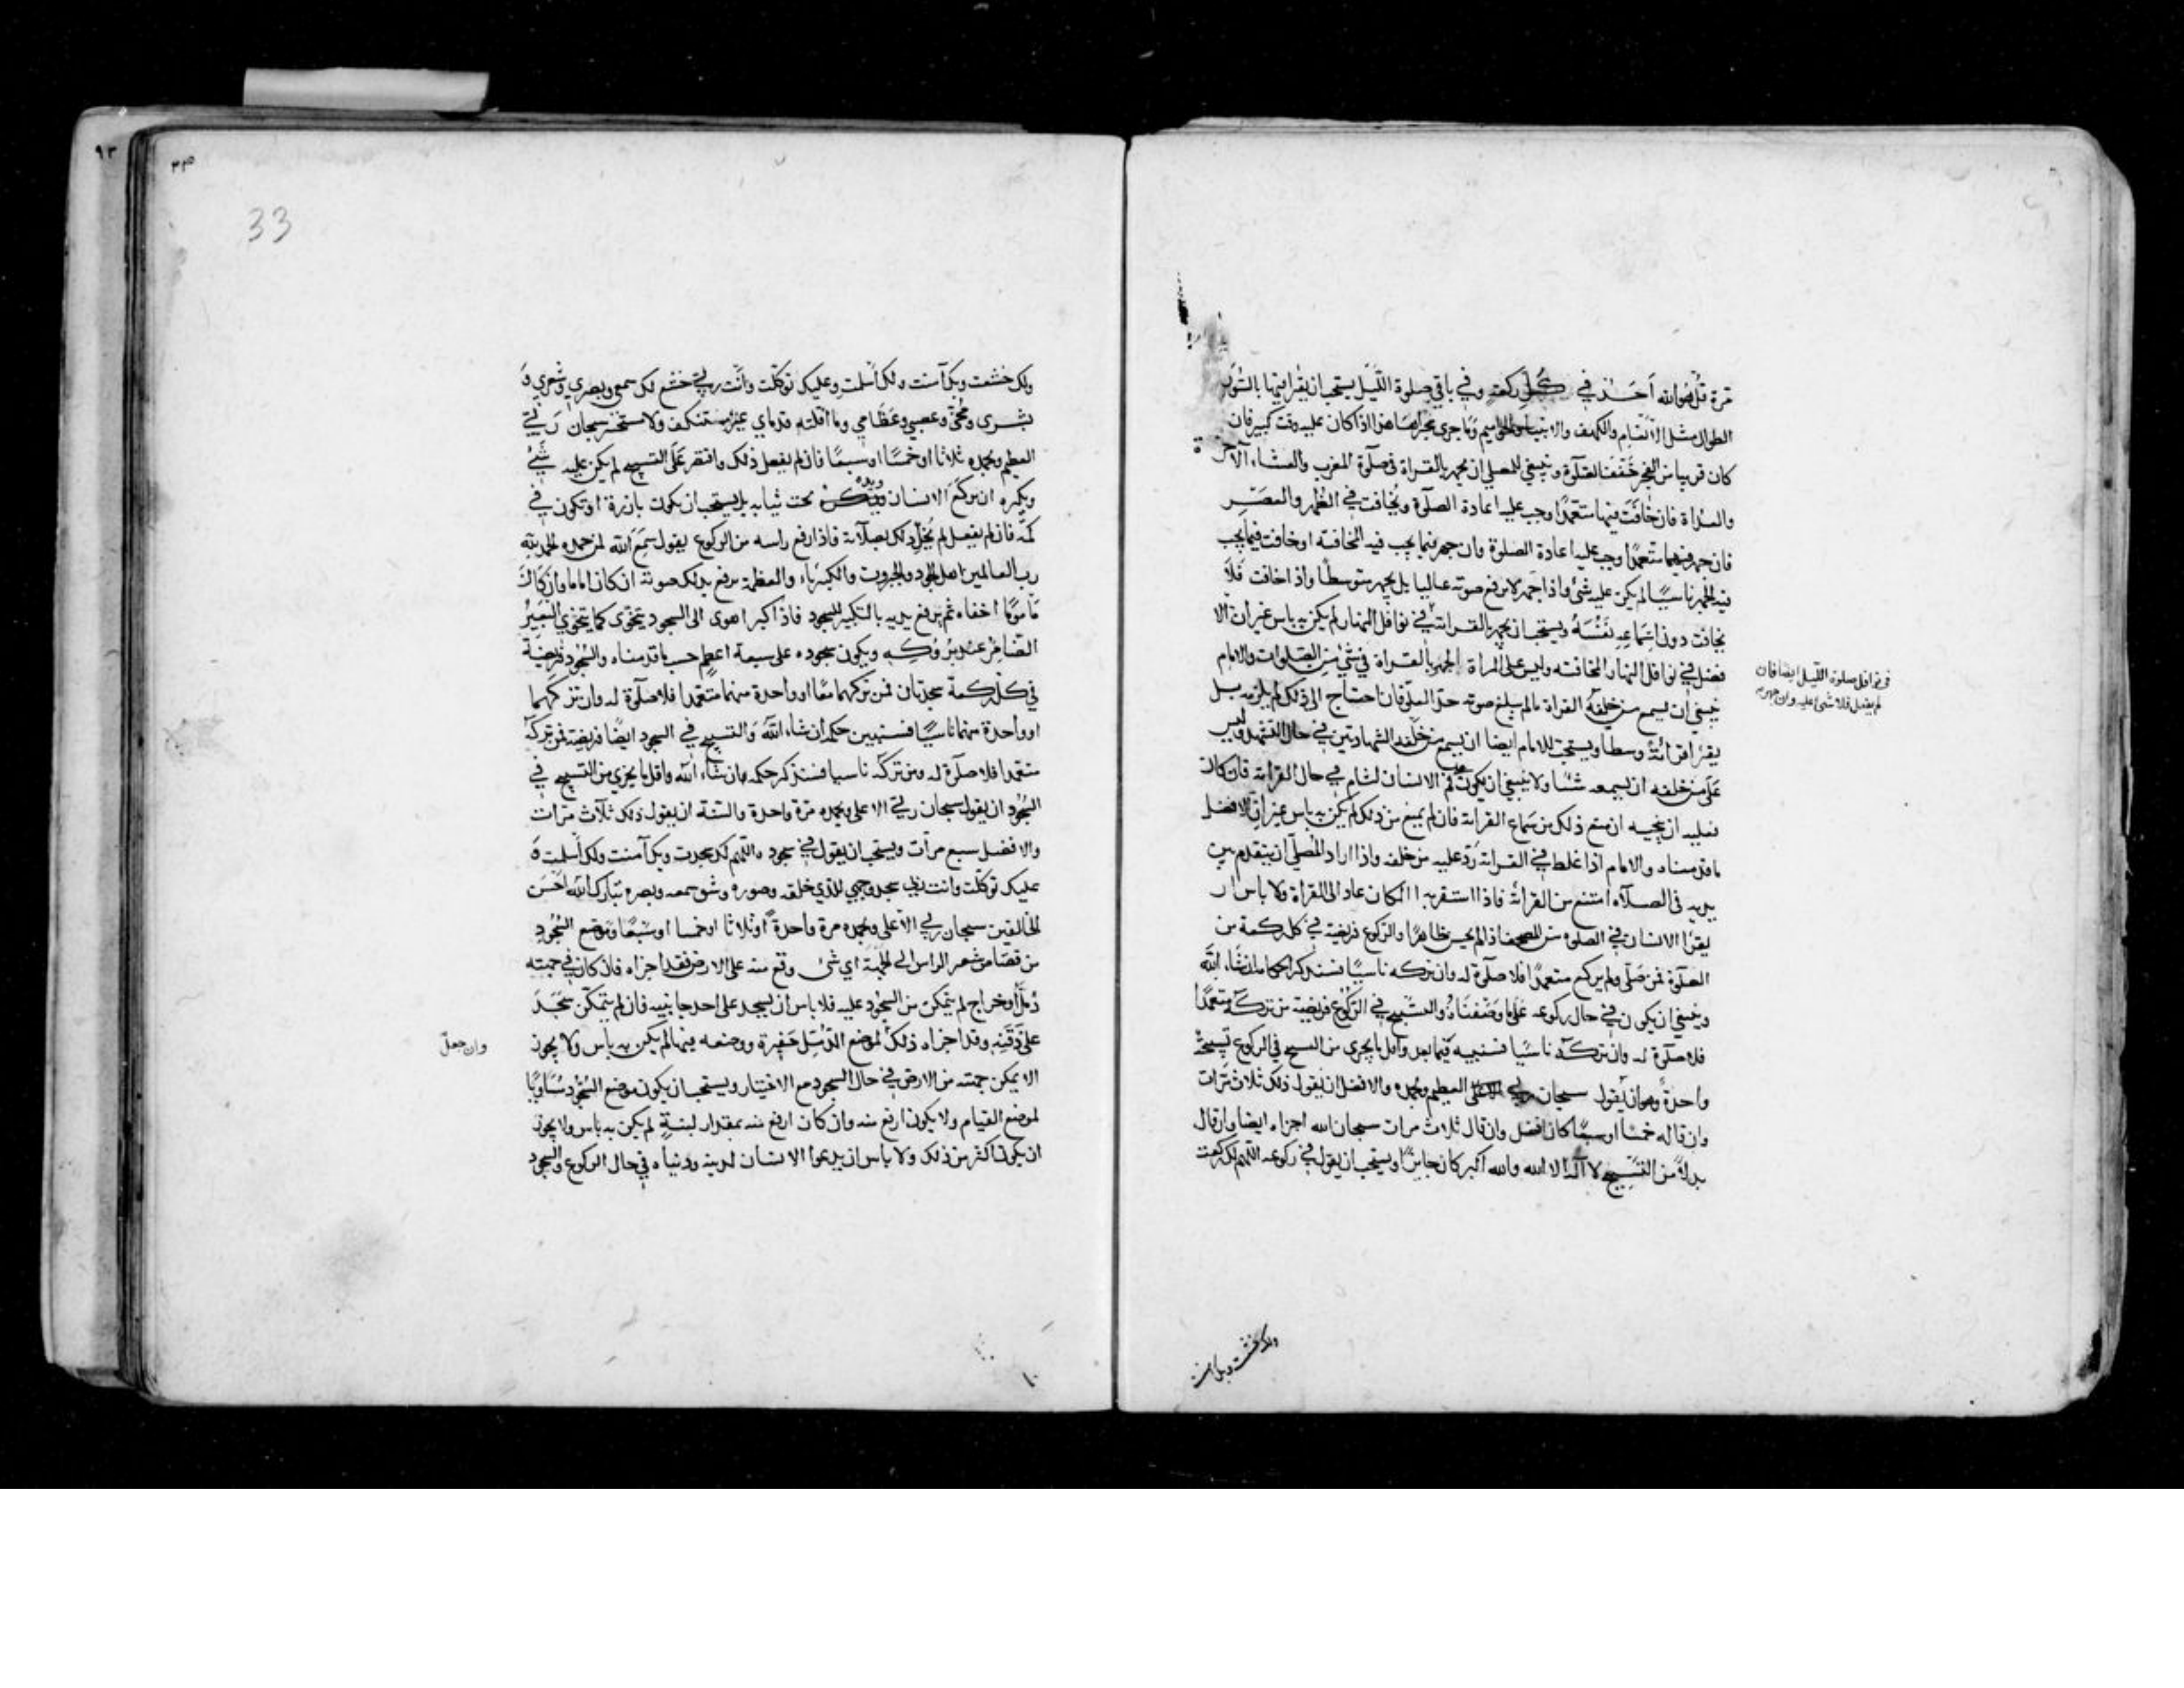 مرة قل هو الله احد في كل ركعة وفي باقي صلوة الليل يستحب ان يقرا فيها بالسور
الطوال مثل الانعام والكهف والانبيا والحواميم وما جرى مجراها هذا اذا كان عليه وقت كبير فان
كان قريبا من الفجر خفف الصلوة وينبغي للمصلي ان يجهر بالقراة في صلوة المغرب والعشاء الاخرة
والغداة فان خافت فيها متعمدا وجب عليه اعادة الصلوة ويخافت في الظهر والعصر
فان جهر فيهما متعمدا وجب عليه اعادة الصلوة وان جهر فيما يجب فيه المخافتة او خافت فيما يجب
فيه الجهر ناسيا لم يكن عليه شئ واذا جهر لا يرفع صوته عاليا بل يجهر متوسطا واذا خافت فلا
يخافت دون اسماعه نفسه ويستحب ان يجهر بالقراة في نوافل النهار لم يكن به باس غير ان الا
فضل في نوافل النهار المخافتة وليس على المراة الجهر بالقراة في شئ من الصلوات والامام
ينبغي ان يسمع من خلفه القراة مالم يبلغ صوته حد العلو فان احتاج الى ذلك لم يلزمه بل
يقرا قرائة وسطا ويستحب للامام ايضا ان يسمع من خلفه الشهادتين في حال التشهد وليس
على من خلفه ان يسمعه شئا ولا ينبغي ان يكون على فم الانسان لثام في حال القراة فان كان
فعليه ان ينحيه ان منع ذلك من سماع القراة فان لم يمنع من ذلك لم يكن به باس غير ان الافضل
ما قدمناه والامام اذا غلط في القراة رد عليه من خلفه واذا اراد المصلي ان يتقدم بين
يديه في الصلاة امتنع من القراة فاذا استقر به المكان عاد الى القراة ولا باس ان
يقرا الانسان في الصلوة من المصحف اذا لم يحسن ظاهرا والركوع فريضة في كل ركعة من
الصلوة فمن صلى ولم يركع متعمدا فلا صلوة له وان تركه ناسيا فسنذكر احكامه ان شاء الله
وينبغي ان يكون في حال ركوعه على ما وصفناه والتسبيح في الركوع فريضة من تركه متعمدا
فلا صلوة له وان تركه ناسيا فسنبينه فيما بعد واقل ما يجزى من التسبيح في الركوع تسبيحة
واحدة وهو ان يقول سبحان ربي العظيم وبحمده والافضل ان يقول ذلك ثلاث مرات
وان قاله خمسا او سبعا كان افضل وان قال ثلاث مرات سبحان الله اجزاه ايضا وان قال
بدلا من التسبيح لا اله الا الله والله اكبر كان جايزا ويستحب ان يقول في ركوعه اللهم لك ركعت
في نوافل صلوة الليل ايضا فان
لم يفعل فلا شئ عليه وان جهر
ولك خشعت وبك امنت
٩٣
٣٣
33
ولك خشعت وبك آمنت ولك اسلمت وعليك توكلت وانت ربي خشع لك سمعي وبصري وشعري و
بشرى ومخي وعصبي وعظامي وما اقلته قدماي غير مستنكف ولا مستحسر سبحان ربي
العظيم وبحمده ثلاثا او خمسا او سبعا فان لم يفعل ذلك واقتصر على التسبيح لم يكن عليه شئ
ويكره ان يركع الانسان ويده تحت ثيابه بل يستحب ان يكون بارزة او تكون في
كمه فان لم يفعل لم يخل ذلك بصلاته فاذا رفع راسه من الركوع يقول سمع الله لمن حمده الحمد لله
رب العالمين اهل الجود والجبروت والكبرياء والعظمة يرفع بذلك صوته ان كان اماما وان كان
ماموما اخفاه ثم يرفع يديه بالتكبير للسجود فاذا كبر اهوى الى السجود يتخوى كما يتخوي البعير
الضامر عند بروكه ويكون سجوده على سبعة اعظم حسب ما قدمناه والسجود فريضة
في كل ركعة سجدتان فمن تركهما معا او واحدة منهما متعمدا فلا صلوة له وان تركهما
او واحدة منهما ناسيا فسنبين حكمه ان شاء الله والتسبيح في السجود ايضا فريضة فمن تركه
متعمدا فلا صلوة له ومن تركه ناسيا فسنذكر حكمه ان شاء الله واقل ما يجزي من التسبيح في
السجود ان يقول سبحان ربي الاعلى وبحمده مرة واحدة والسنة ان يقول ذلك ثلاث مرات
والافضل سبع مرات ويستحب ان يقول في سجوده اللهم لك سجدت وبك آمنت ولك اسلمت و
عليك توكلت وانت ربي سجد وجهي للذي خلقه وصوره وشق سمعه وبصره تبارك الله احسن
الخالقين سبحان ربي الاعلى وبحمده مرة واحدة او ثلاثا او خمسا او سبعا وموضع السجود
من قصاص شعر الراس الى الجبهة اي شئ وقع منه على الارض فقد اجزاه فان كان في جبهته
دمل او خراج لم يتمكن من السجود عليه فلا باس ان يسجد على احد جانبيه فان لم يتمكن سجد
على ذقنه وقد اجزاه ذلك لموضع الدمل حفيرة ووضعه فيها لم يكن به باس ولا يجوز
الا يمكن جبهته من الارض في حال السجود مع الاختيار ويستحب ان يكون موضع السجود مساويا
لموضع القيام ولا يكون ارفع منه وان كان ارفع منه بمقدار لبنة لم يكن به باس ولا يجوز
ان يكون اكثر من ذلك ولا باس ان يدعوا الانسان لدينه ودنياه في حال الركوع والسجود
وان جعل